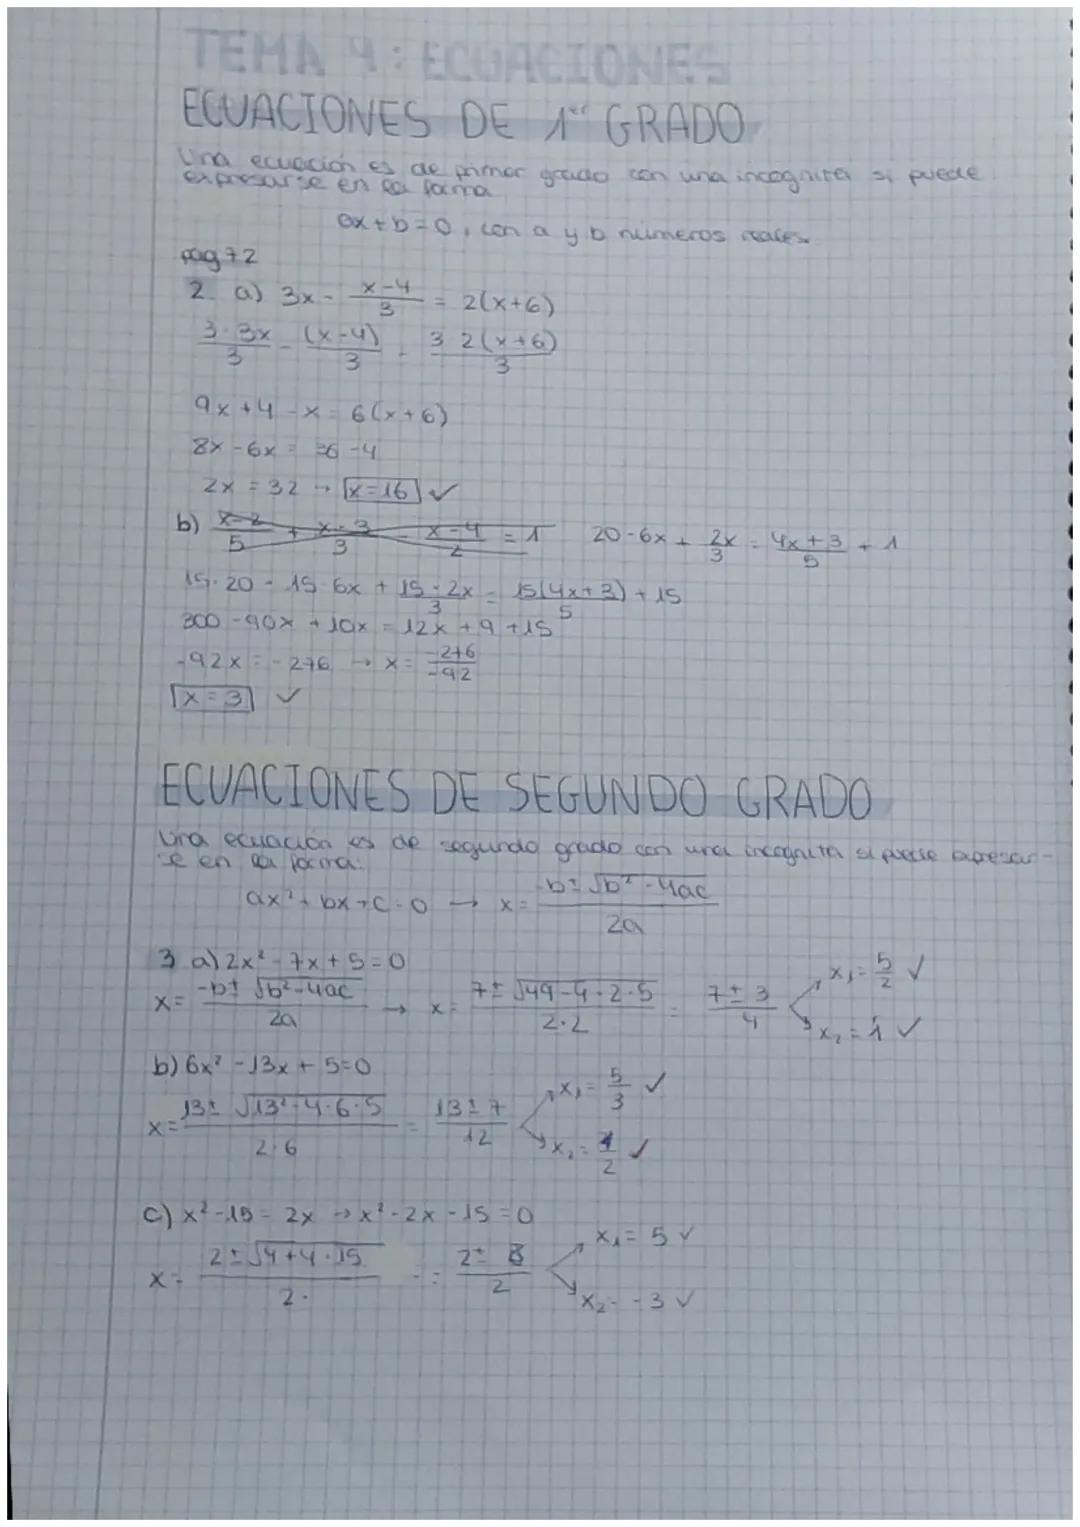 TEMA 4: ECUACIONES
ECUACIONES DE 1er GRADO
Una ecuación es de primer grado con una incognita si puede
expresarse en la forma
ax+b=0, con a y b números reales.
pag 72
2. a) 3x - (x-4)/3 = 2(x+6)
3·3x/3 - (x-4)/3 = 3 2(x+6)/3
9x+4-x = 6(x+6)
8x-6x = 36-4
2x = 32 → x=16 ✓
b) (x-2)/5 + (x-3)/3 - (x-4)/2 = 1 20-6x + 2x/3 = (4x+3)/5 + 1
15·20 - 15·6x + 15·2x/3 = 15(4x+3)/5 + 15
300-90x+10x = 12x+9+15
-92x = -276 → x = -276/-92
x=3 ✓
ECUACIONES DE SEGUNDO GRADO
Una ecuación es de segundo grado con una incognita si puede expresar-
se en la forma:
ax²+bx+c=0 → x = (-b±√(b²-4ac))/2a
3 a) 2x²-7x+5=0
x = (-b±√(b²-4ac))/2a → x = (7±√(49-4·2·5))/(2·2) = (7±3)/4 x₁ = 5/2 ✓ x₂ = 1 ✓
b) 6x²-13x+5=0
x = (13±√(13²-4·6·5))/(2·6) = (13±7)/12 x₁ = 5/3 ✓ x₂ = 1/2 ✓
c) x²-15=2x → x²-2x-15=0
x = (2±√(4+4·15))/2· = (2±8)/2 x₁ = 5 ✓ x₂ = -3 ✓